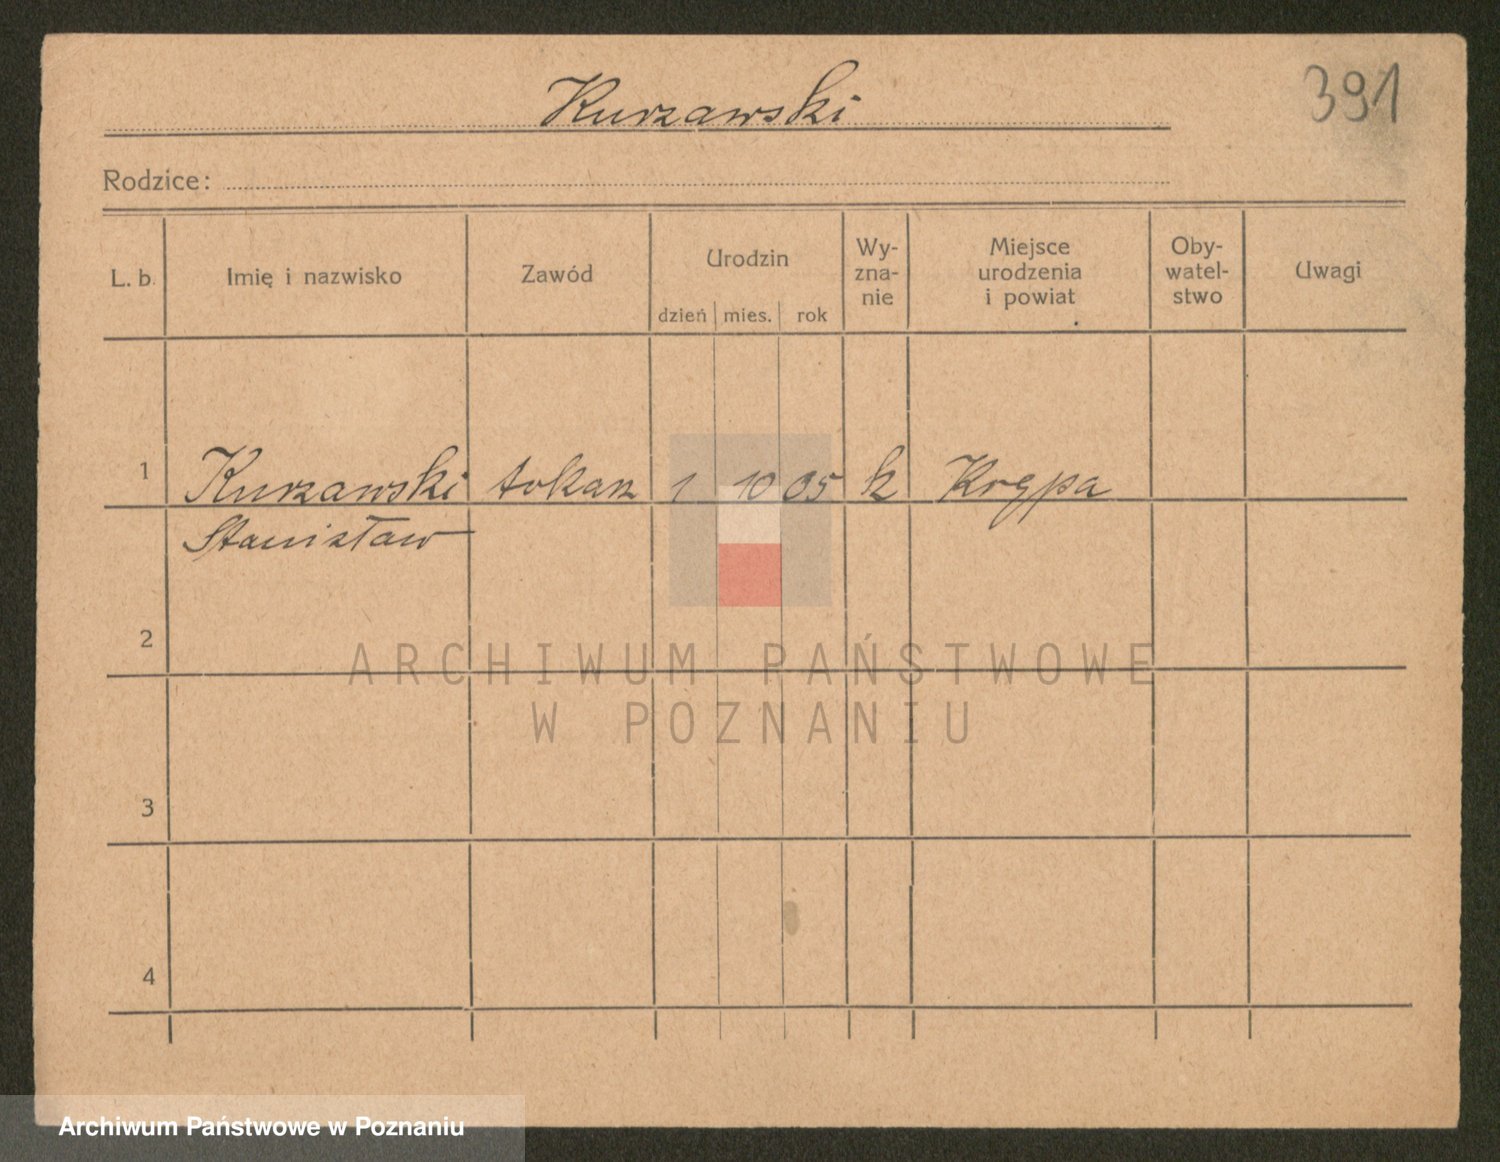 Kurzawski
391
Rodzice:
L. b. Imię i nazwisko Zawód Urodzin dzień mies. rok Wy-zna-nie Miejsce urodzenia i powiat Oby-watel-stwo Uwagi
1 Kurzawski tokarz 1 10 05 k Krępa
Stanisław
2
ARCHIWUM PAŃSTWOWE
W POZNANIU
3
4
Archiwum Państwowe w Poznaniu